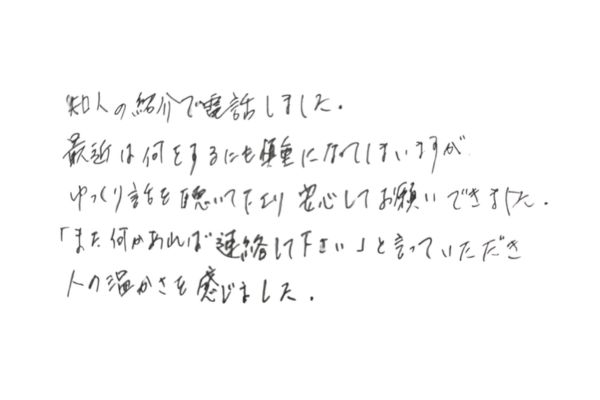 知人の紹介で電話しました。
最近は何をするにも慎重になってしまいますが
ゆっくり話を聴いてくださり安心してお願いできました。
「また何かあれば連絡して下さい」と言っていただき
人の温かさを感じました。